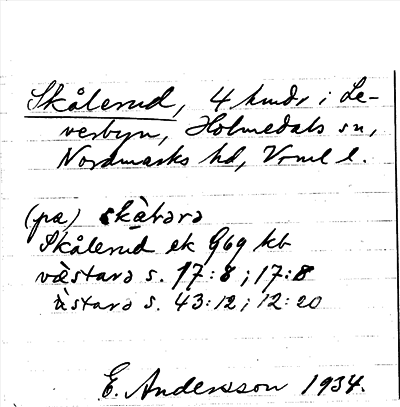 Skålerud, 4 hmdr i Le-
verbyn, Holmedals sn,
Nordmarks hd, Vrml l.
(pa)
Skålerud ek G69 kb
västara s. 17:8; 17:8
s. 43:12; 12:20
E. Andersson 1934.